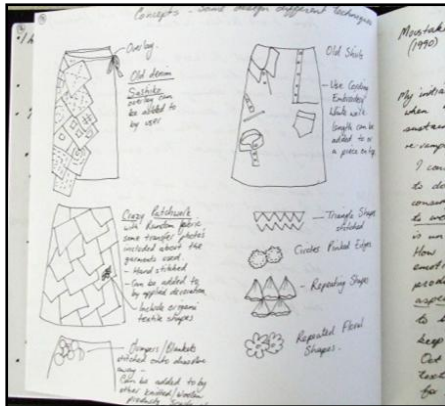 Concepts - Some design different techniques
Overlay
Old denim
Sashiko
overlay can
be added to
by user
Old Shirts
- Use Cording
Embroidery
White work
length can be
added to or
a piece on top
Crazy Patchwork
with Random fabric
some transfer photo's
included about the
garments used.
- Hand stitched
- Can be added to
by applied decoration
- Include organic
textile shapes
- Triangle Shapes
stitched
Circles Pinked Edges
- Repeating Shapes
Repeated Floral
Shapes.
- Jumpers/Blankets
stitched onto dissolve
away -
Can be added to by
other knitted/woolen
(1990)
My
when
I
to
is
How
to
keep